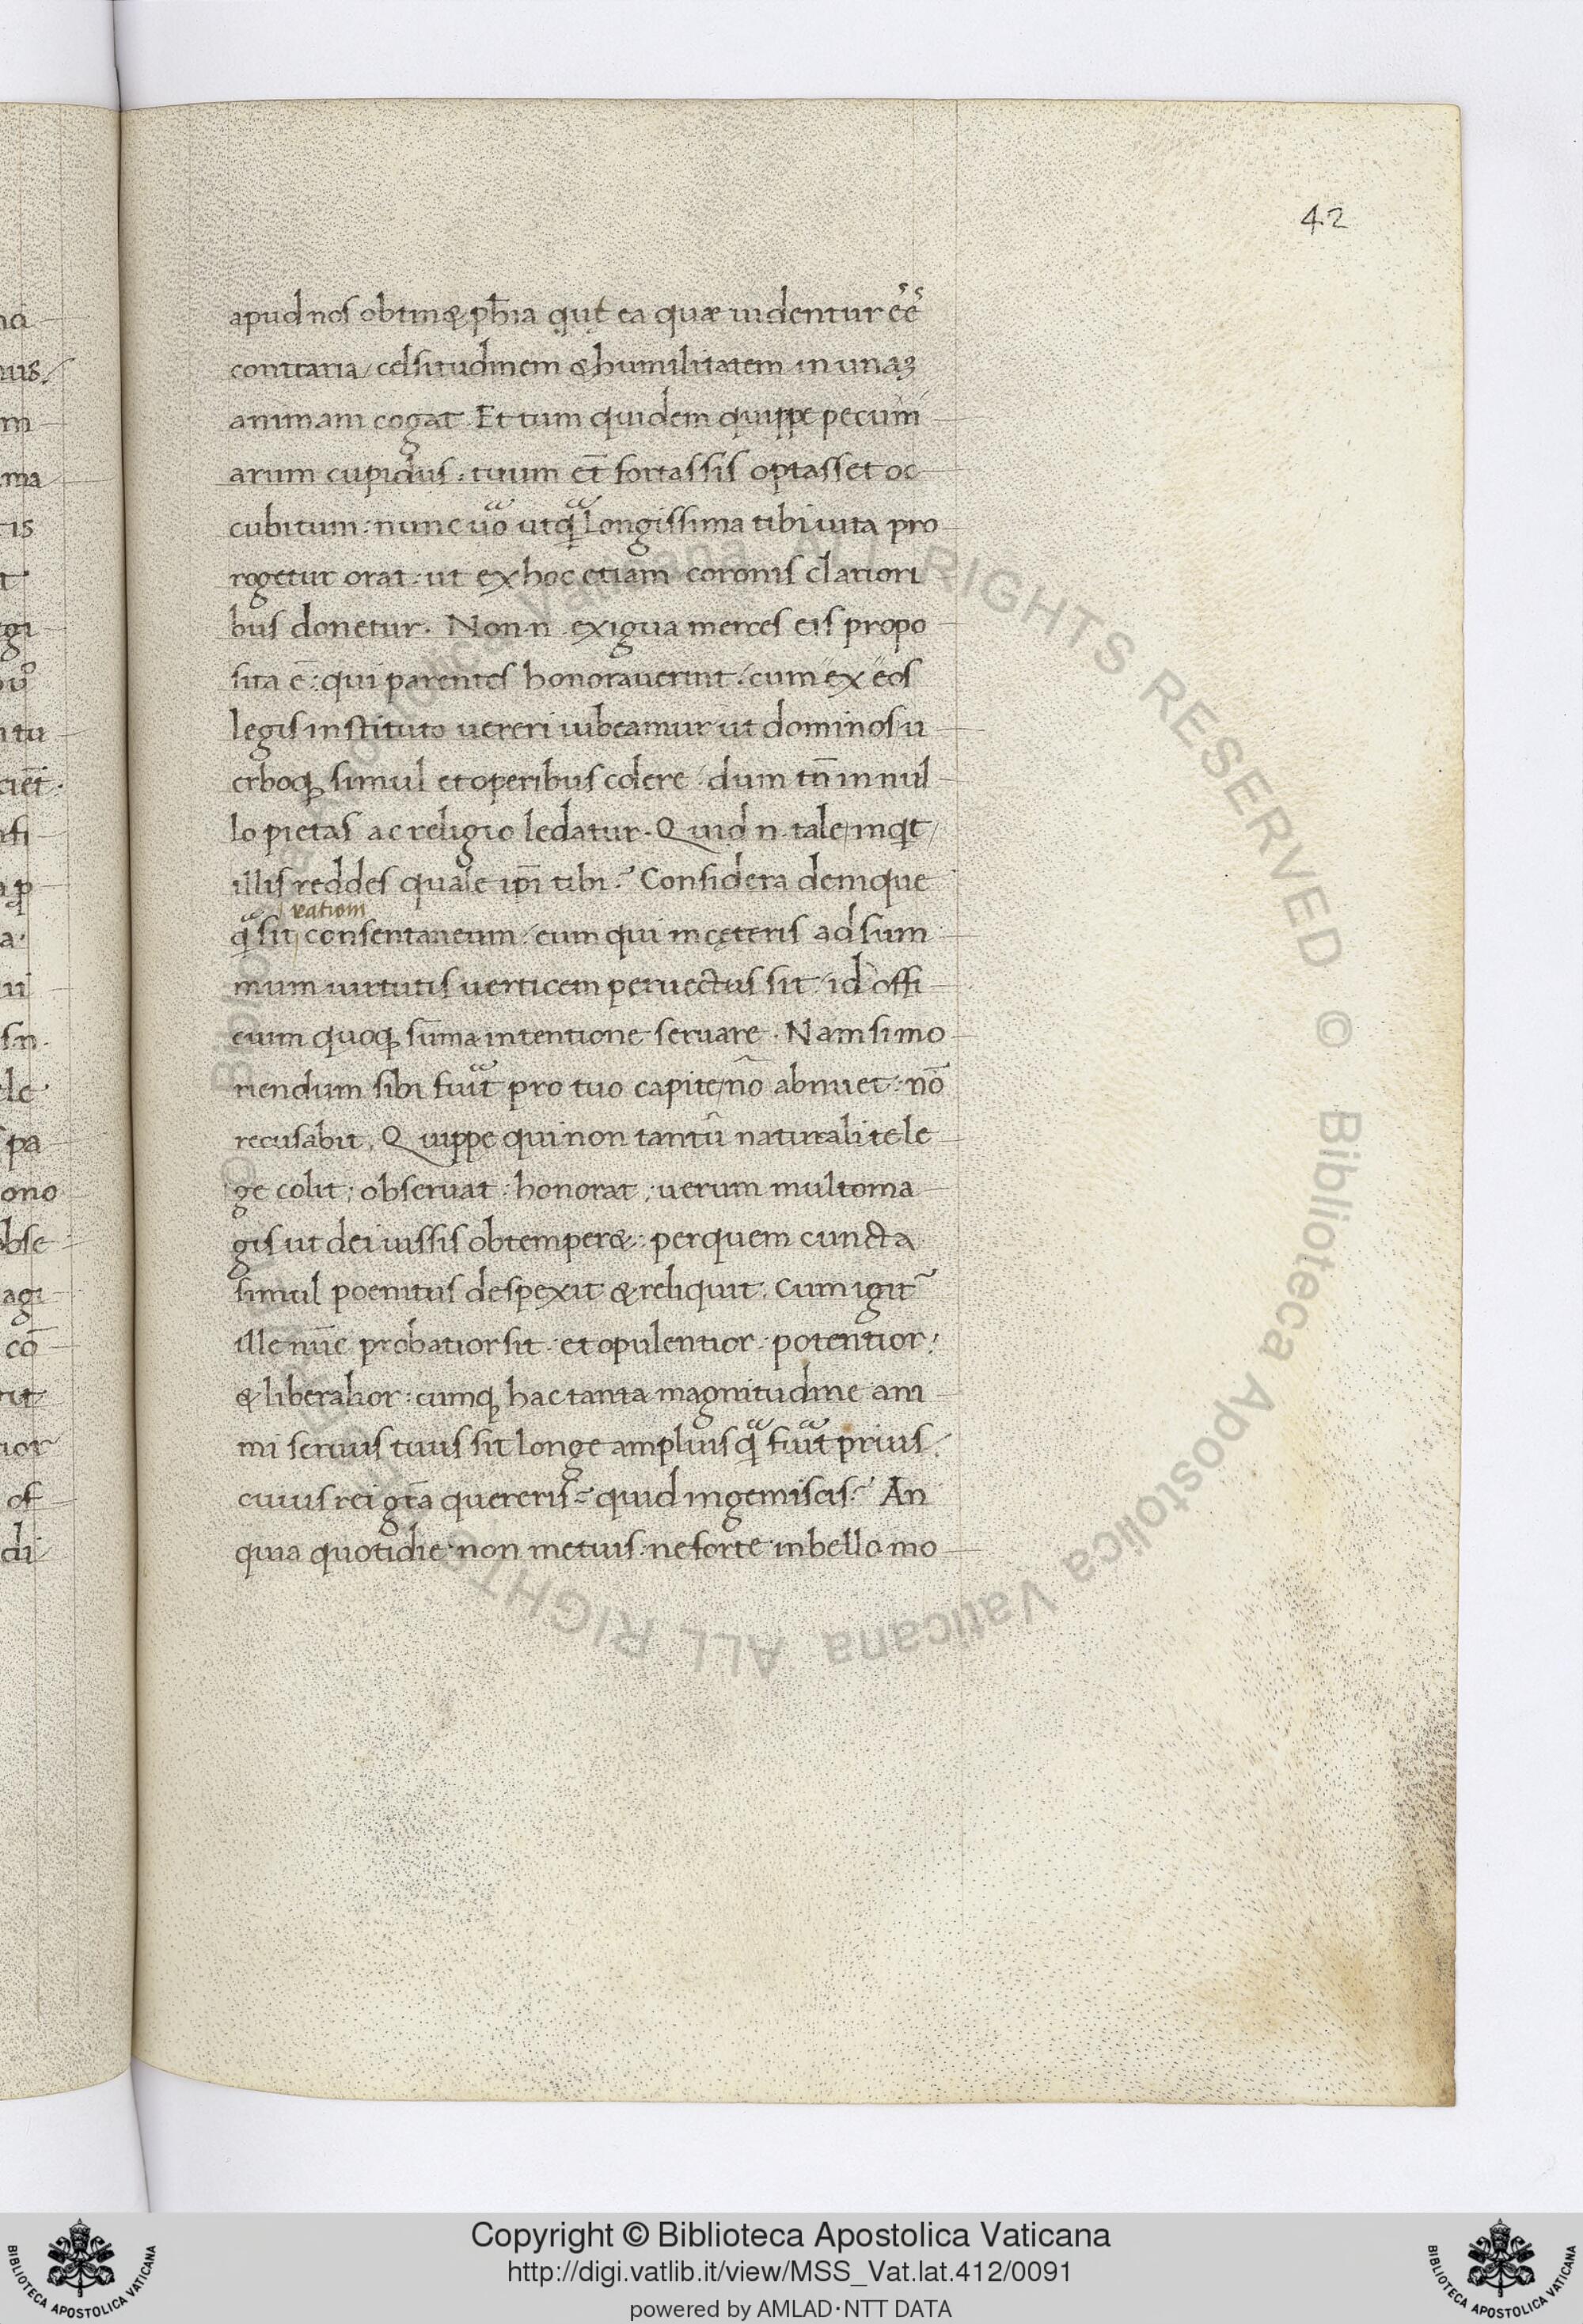 42
apud nos obtinet ph̄ia qut̨ ea quæ uidentur ēē
contraria / celsitudinem & humilitatem in unaʒ
animam cogat. Et tum quidem quippe pecuni
arum cupidus : tuum et̄ fortassis optasset oc
cubitum : nunc uo̅ utq̃ longissima tibi uita pro
rogetur orat : ut ex hoc etiam coronis clariori
bus donetur. Non n. exigua merces eis propo
sita ē : qui parentes honorauerint : cum ex eos
legis instituto uereri iubeamur ut dominos u
erboq; simul et operibus colere : dum tn̄ in nul
lo pietas ac religio ledatur. Quid n. tale inqt /
illis reddes quale ip̄i tibi? Considera denique
rationi
q̃ sit consentaneum : eum qui in cęteris ad sum
mum uirtutis uerticem peruectus sit : id offi
cium quoq; sūma intentione seruare. Nam si mo
riendum sibi fuit̃ pro tuo capite / nō abnuet : nō
recusabit. Quippe qui non tantū naturali te le
ge colit ; obseruat : honorat ; uerum multo ma
gis ut dei iussis obtemperet : per quem cuncta
simul poenitus despexit & reliquit. Cum igit᷑
ille nūc probatior sit : et opulentior : potentior :
& liberalior : cumq; hac tanta magnitudine ani
mi seruus tuus sit longe amplius q̃ fuit̃ prius :
cuius rei gr̄a quereris? quid ingemiscis? An
quia quotidie non metuis : ne forte in bello mo
© Biblioteca Apostolica Vaticana ALL RIGHTS RESERVED © Biblioteca Apostolica Vaticana ALL RIGHTS RESERVED
Copyright © Biblioteca Apostolica Vaticana
http://digi.vatlib.it/view/MSS_Vat.lat.412/0091
powered by AMLAD·NTT DATA
BIBLIOTECA APOSTOLICA VATICANA
BIBLIOTECA APOSTOLICA VATICANA